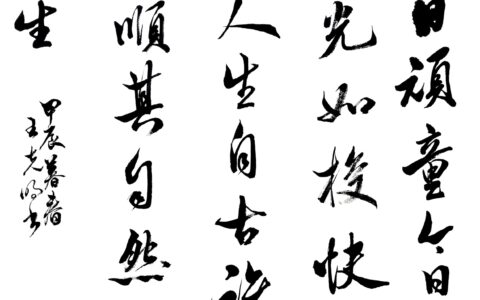 日頑童今日
光如梭快
人生自古
順其自然
生
甲辰暮春
王光明书